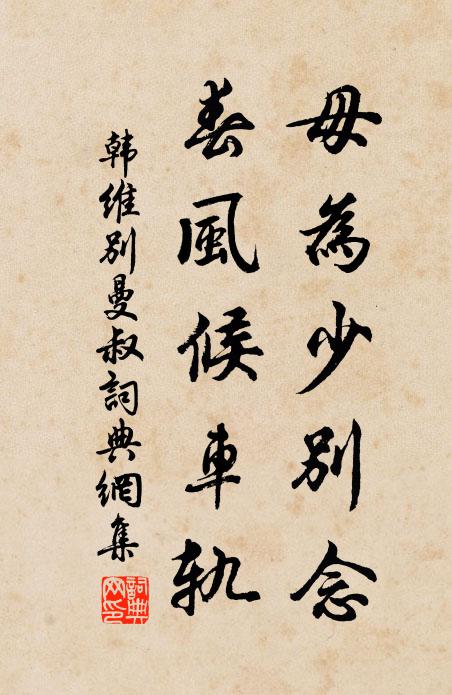 毋為少別念
春風候車軌
韩維別曼叔詞典網集
詞典網印